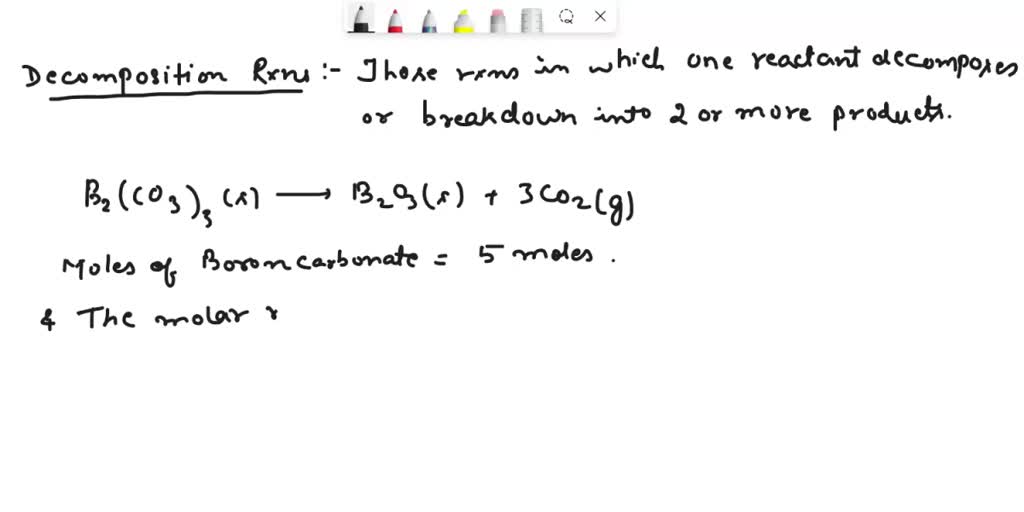 Decomposition Rxns :- Those rxns in which one reactant decomposes
or breakdown into 2 or more products.
B₂(CO₃)₃(s) ⟶ B₂O₃(s) + 3CO₂(g)
Moles of Boron carbonate = 5 moles.
& The molar r